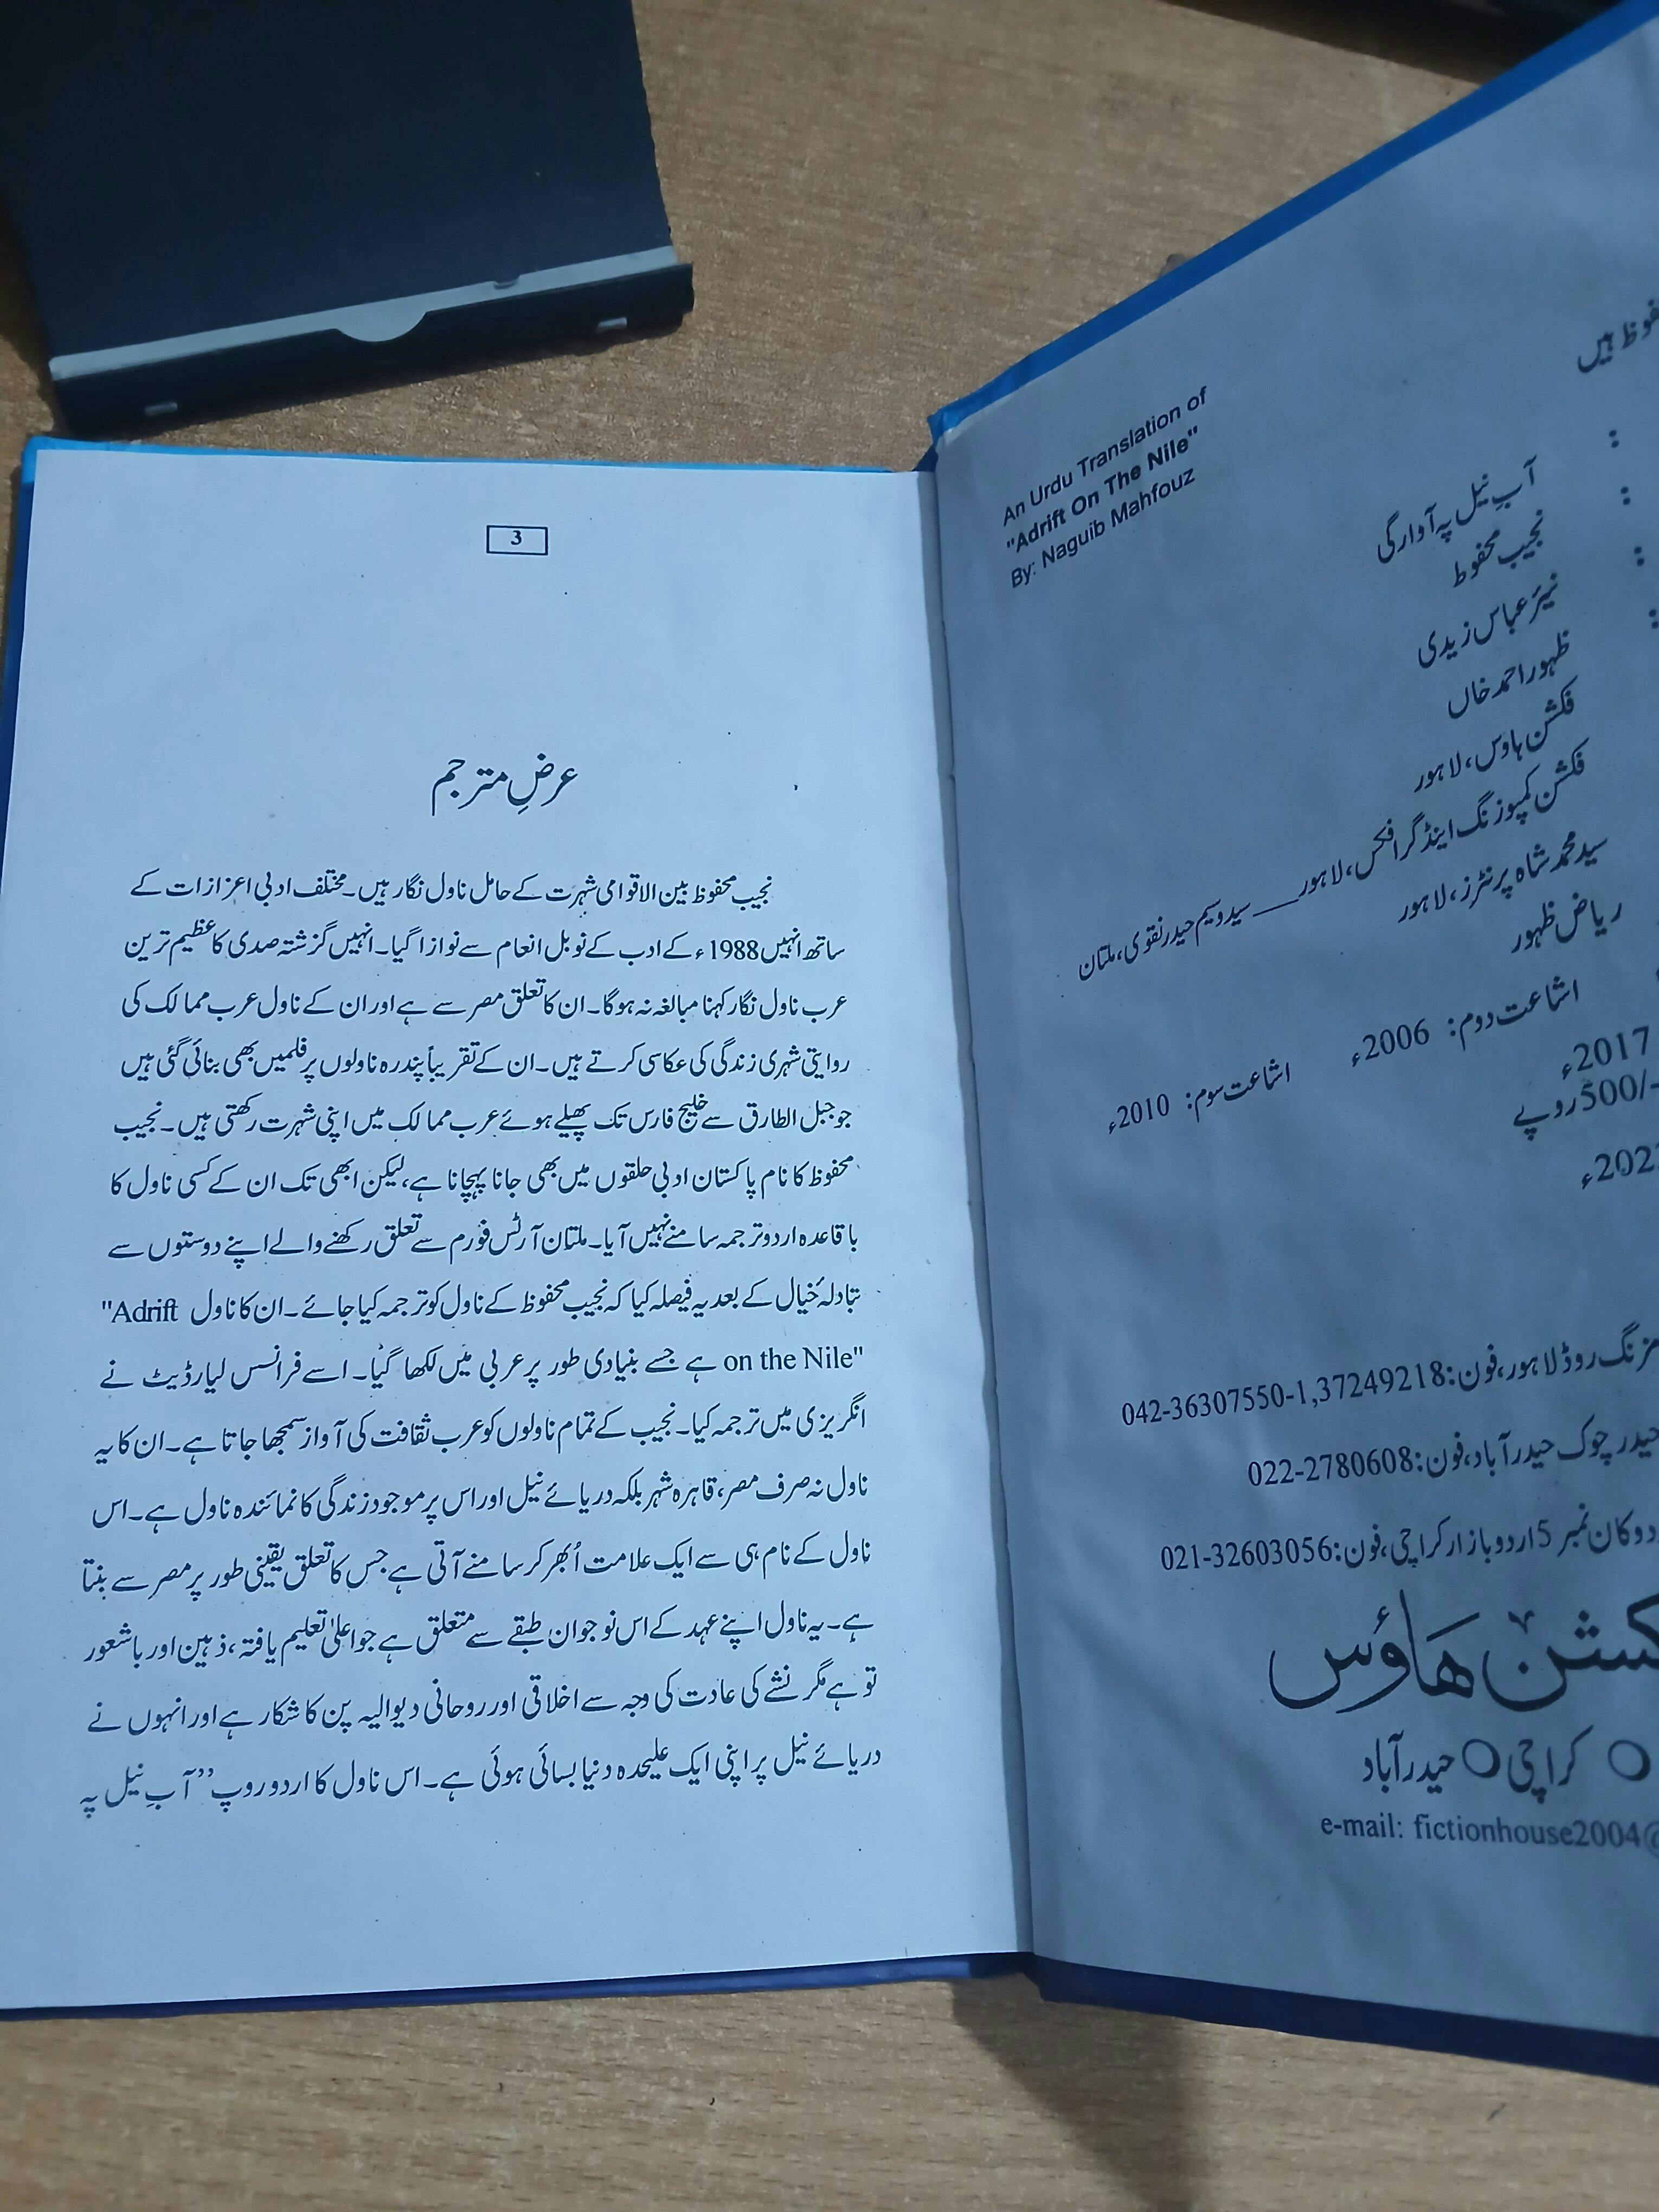 محفوظ ہیں
An Urdu Translation of
"Adrift On The Nile"
By: Naguib Mahfouz
: آبِ نیل پہ آوارگی
: نجیب محفوظ
: نیّر عباس زیدی
: ظہور احمد خاں
فکشن ہاوس، لاہور
فکشن کمپوزنگ اینڈ گرافکس، لاہور ___ سید وسیم حیدر نقوی، ملتان
سید محمد شاہ پرنٹرز، لاہور
ریاض ظہور
اشاعت دوم: 2006ء
اشاعت سوم: 2010ء
2017ء
500/- روپے
مزنگ روڈ لاہور، فون: 042-36307550-1,37249218
حیدر چوک حیدرآباد، فون: 022-2780608
دوکان نمبر 5 اردو بازار کراچی، فون: 021-32603056
فکشن ھاؤس
○ کراچی ○ حیدرآباد
e-mail: fictionhouse2004@
3
عرضِ مترجم
نجیب محفوظ بین الاقوامی شہرت کے حامل ناول نگار ہیں۔ مختلف ادبی اعزازات کے
ساتھ انہیں 1988ء کے ادب کے نوبل انعام سے نوازا گیا۔ انہیں گزشتہ صدی کا عظیم ترین
عرب ناول نگار کہنا مبالغہ نہ ہوگا۔ ان کا تعلق مصر سے ہے اور ان کے ناول عرب ممالک کی
روایتی شہری زندگی کی عکاسی کرتے ہیں۔ ان کے تقریباً پندرہ ناولوں پر فلمیں بھی بنائی گئی ہیں
جو جبل الطارق سے خلیج فارس تک پھیلے ہوئے عرب ممالک میں اپنی شہرت رکھتی ہیں۔ نجیب
محفوظ کا نام پاکستان ادبی حلقوں میں بھی جانا پہچانا ہے، لیکن ابھی تک ان کے کسی ناول کا
باقاعدہ اردو ترجمہ سامنے نہیں آیا۔ ملتان آرٹس فورم سے تعلق رکھنے والے اپنے دوستوں سے
تبادلۂ خیال کے بعد یہ فیصلہ کیا کہ نجیب محفوظ کے ناول کو ترجمہ کیا جائے۔ ان کا ناول "Adrift
on the Nile" ہے جسے بنیادی طور پر عربی میں لکھا گیا۔ اسے فرانسس لیارڈیٹ نے
انگریزی میں ترجمہ کیا۔ نجیب کے تمام ناولوں کو عرب ثقافت کی آواز سمجھا جاتا ہے۔ ان کا یہ
ناول نہ صرف مصر، قاہرہ شہر بلکہ دریائے نیل اور اس پر موجود زندگی کا نمائندہ ناول ہے۔ اس
ناول کے نام ہی سے ایک علامت اُبھر کر سامنے آتی ہے جس کا تعلق یقینی طور پر مصر سے بنتا
ہے۔ یہ ناول اپنے عہد کے اس نوجوان طبقے سے متعلق ہے جو اعلیٰ تعلیم یافتہ، ذہین اور باشعور
تو ہے مگر نشے کی عادت کی وجہ سے اخلاقی اور روحانی دیوالیہ پن کا شکار ہے اور انہوں نے
دریائے نیل پر اپنی ایک علیحدہ دنیا بسائی ہوئی ہے۔ اس ناول کا اردو روپ ’’آبِ نیل پہ